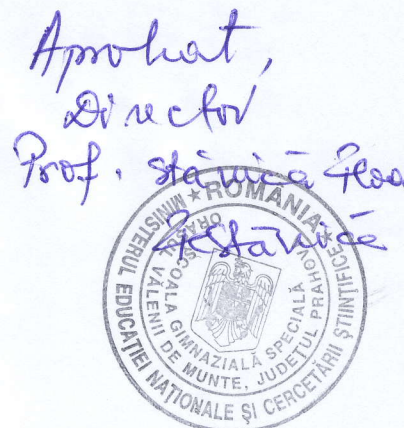 Aprobat,
Director
Prof. Stănică
GStănică
★ ROMÂNIA ★
MINISTERUL EDUCAȚIEI NAȚIONALE ȘI CERCETĂRII ȘTIINȚIFICE
ȘCOALA GIMNAZIALĂ SPECIALĂ
ORAȘUL VĂLENII DE MUNTE, JUDEȚUL PRAHOVA